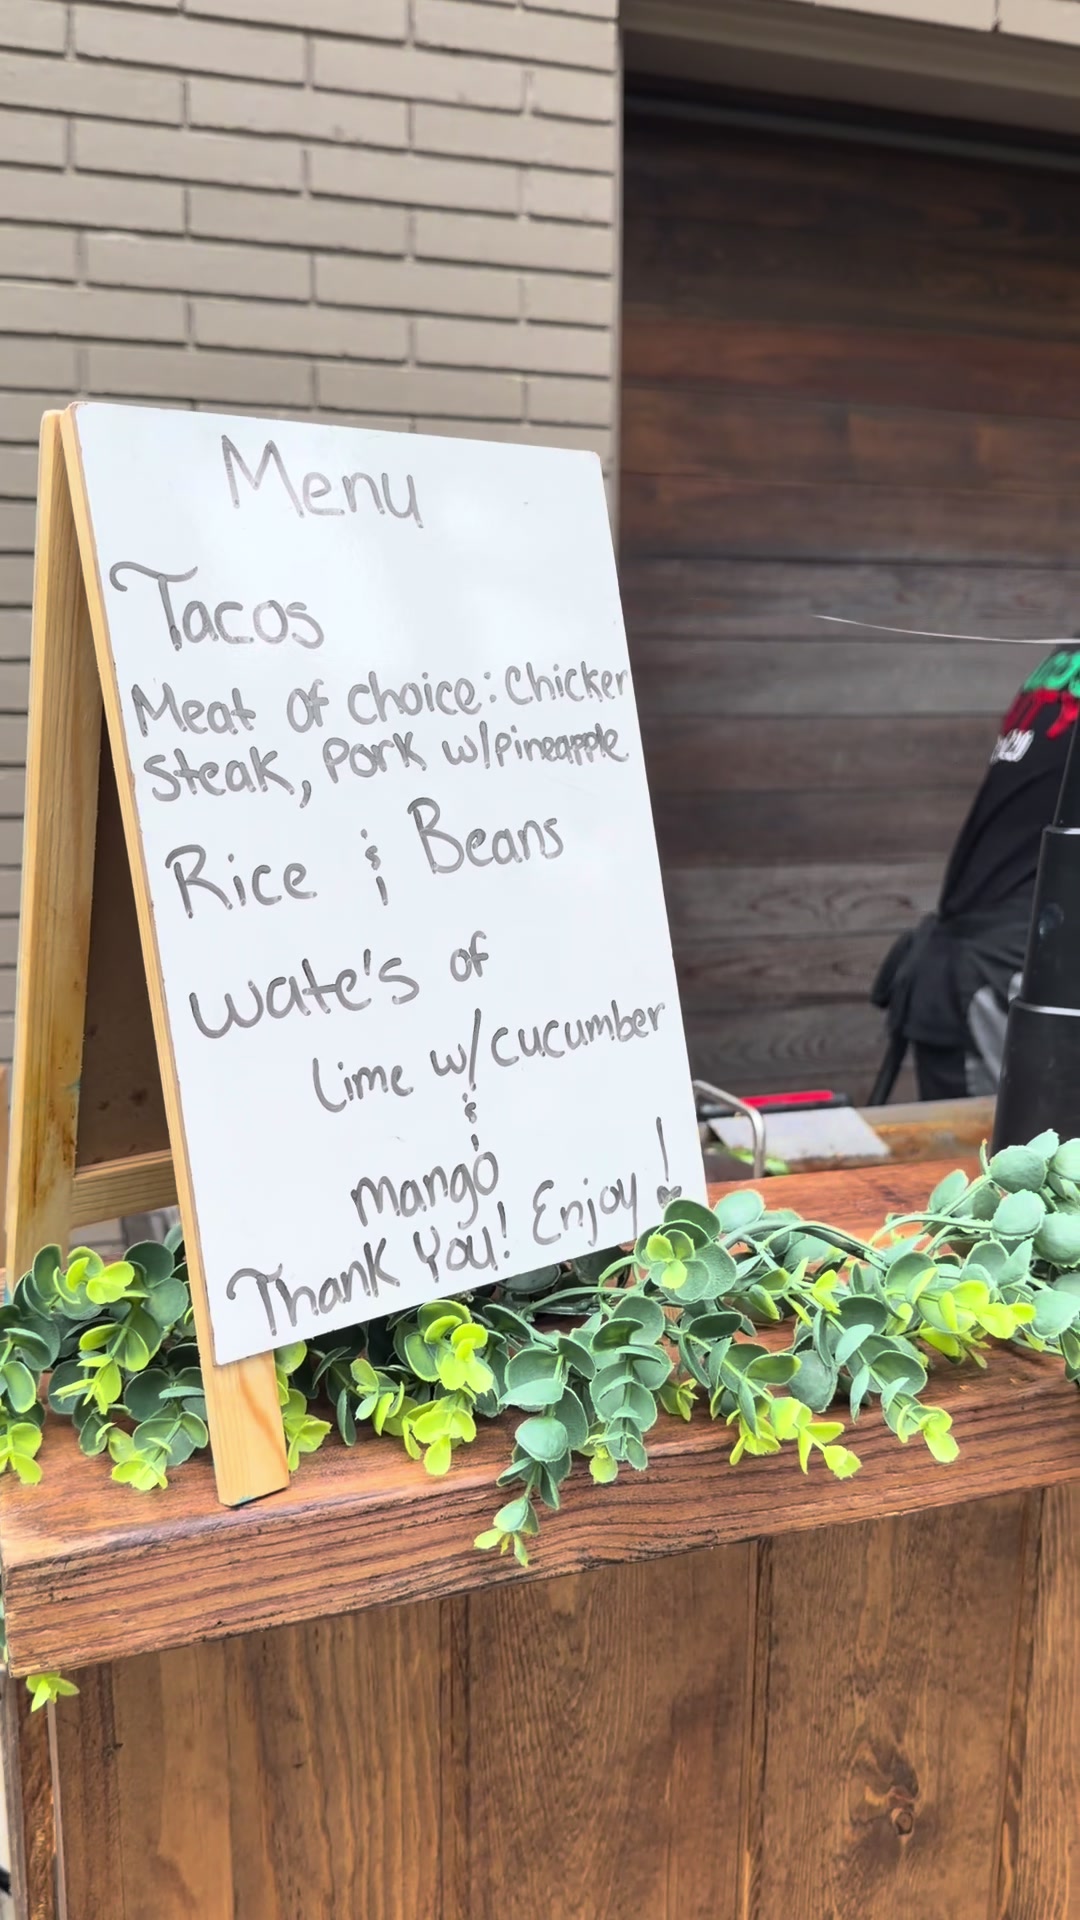 Menu
Tacos
Meat of choice: Chicken
Steak, Pork w/pineapple
Rice & Beans
wate's of
Lime w/cucumber
&
mango
Thank You! Enjoy!